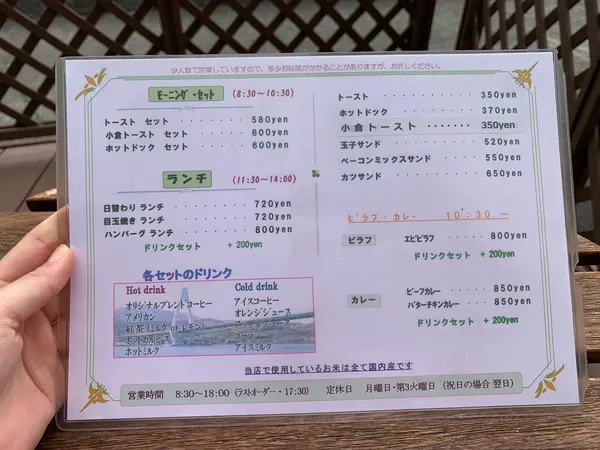 少人数で営業していますので、多少お時間がかかることがありますが、お許しください。
モーニング・セット (8:30～10:30)
トースト セット ・・・・・ 580yen
小倉トースト セット ・・・・ 600yen
ホットドック セット ・・・・ 600yen
ランチ (11:30～14:00)
日替わり ランチ ・・・・・ 720yen
目玉焼き ランチ ・・・・・ 720yen
ハンバーグ ランチ ・・・・ 800yen
ドリンクセット + 200yen
各セットのドリンク
Hot drink
オリジナルブレントコーヒー
アメリカン
紅茶 (ミルク or レモン)
ホットカルピス
ホットミルク
Cold drink
アイスコーヒー
オレンジジュース
コーラ
アイスミルク
トースト ・・・・・・・・ 350yen
ホットドック ・・・・・・ 370yen
小倉トースト ・・・・・・・ 350yen
玉子サンド ・・・・・・・ 520yen
ベーコンミックスサンド ・・・・ 550yen
カツサンド ・・・・・・・ 650yen
ピラフ・カレー 10:30 ～
ピラフ エビピラフ ・・・・・ 800yen
ドリンクセット + 200yen
カレー ビーフカレー ・・・・・ 850yen
バターチキンカレー ・・・・ 850yen
ドリンクセット + 200yen
当店で使用しているお米は全て国内産です
営業時間 8:30～18:00 (ラストオーダー・17:30) 定休日 月曜日・第3火曜日 (祝日の場合 翌日)